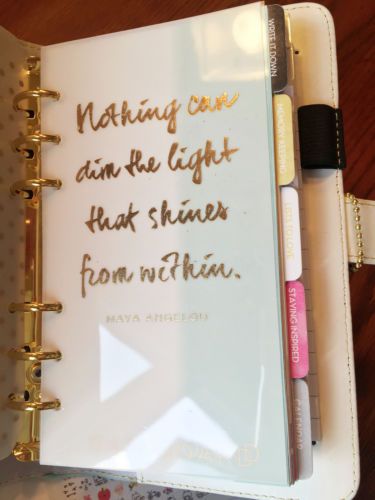 Nothing can
dim the light
that shines
from within.
MAYA ANGELOU
WRITE IT DOWN
MEMORY KEEPING
STAYING INSPIRED
CALENDAR